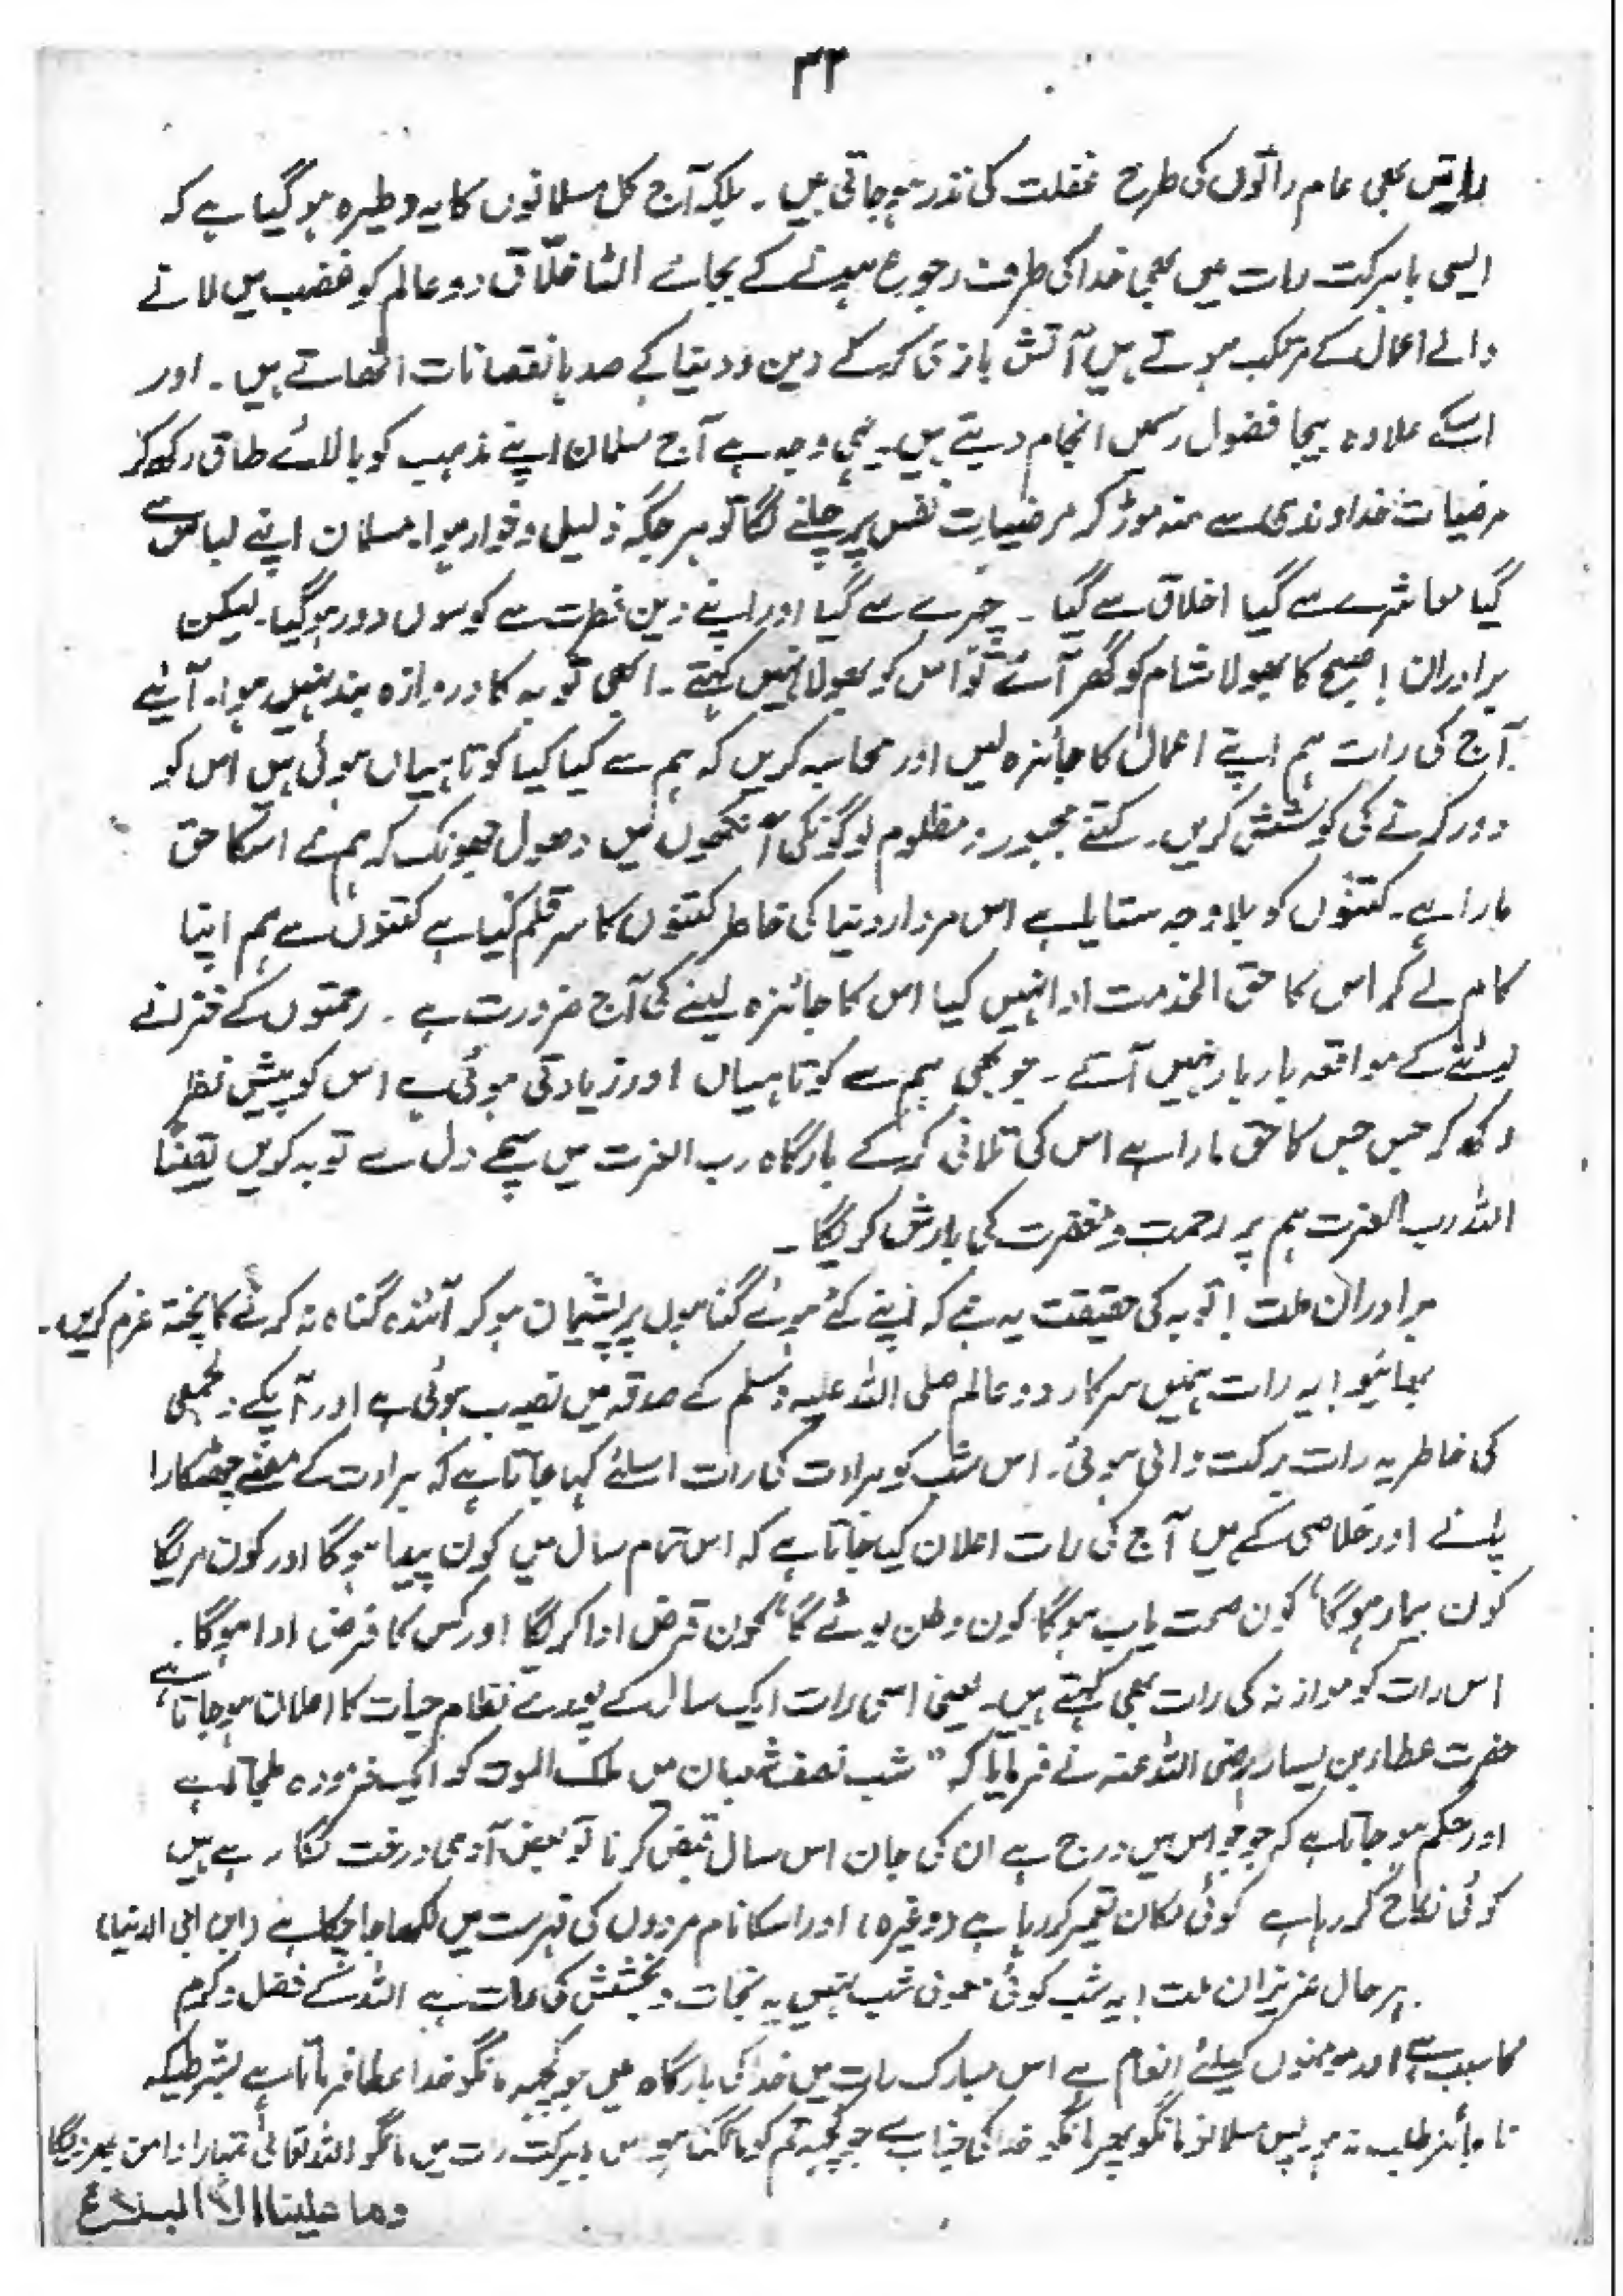 ۳۲
راتیں بھی عام راتوں کی طرح غفلت کی نذر ہوجاتی ہیں ۔ بلکہ آج کل مسلمانوں کا یہ وطیرہ ہو گیا ہے کہ
ایسی بابرکت رات میں بھی خدا کی طرف رجوع ہونے کے بجائے الٹا خلّاق دو عالم کو غضب میں لانے
والے اعمال کے مرتکب ہوتے ہیں آتش بازی کرکے دین و دنیا کے صدہا نقصانات اٹھاتے ہیں ۔ اور
اسکے علاوہ بیجا فضول رسمیں انجام دیتے ہیں۔ یہی وجہ ہے آج مسلمان اپنے مذہب کو بالائے طاق رکھ کر
مرضیات خداوندی سے منہ موڑ کر مرضیات نفس پر چلنے لگا تو ہر جگہ ذلیل و خوار ہوا۔ مسلمان اپنے لباس سے
گیا معاشرے سے گیا اخلاق سے گیا ۔ چہرے سے گیا اور اپنے دین فطرت سے کوسوں دور ہوگیا۔ لیکن
برادران ! صبح کا بھولا شام کو گھر آئے تو اس کو بھولا نہیں کہتے ۔ ابھی توبہ کا دروازہ بند نہیں ہوا۔ آئیے
آج کی رات ہم اپنے اعمال کا جائزہ لیں اور محاسبہ کریں کہ ہم سے کیا کیا کوتاہیاں ہوئی ہیں اس کو
دور کرنے کی کوشش کریں۔ کتنے مجبور و مظلوم لوگونکی آنکھوں میں دھول جھونک کر ہم نے اسکا حق
مارا ہے۔ کتنوں کو بلا وجہ ستایا ہے اس مردار دنیا کی خاطر کتنوں کا سر قلم کیا ہے کتنوں سے ہم اپنا
کام لے کر اس کا حق الخدمت ادا نہیں کیا اس کا جائزہ لینے کی آج ضرورت ہے ۔ رحمتوں کے خزانے
لوٹنے کے مواقعہ بار بار نہیں آتے ۔ جو بھی ہم سے کوتاہیاں اور زیادتی ہوئی ہے اس کو پیش نظر
رکھ کر جس جس کا حق مارا ہے اس کی تلافی کرکے بارگاہ رب العزت میں سچے دل سے توبہ کریں یقیناً
اللہ رب العزت ہم پر رحمت و مغفرت کی بارش کریگا ۔
برادران ملت ! توبہ کی حقیقت یہ ہے کہ اپنے کئے ہوئے گناہوں پر پشیمان ہو کر آئندہ گناہ نہ کرنے کا پختہ عزم کریں۔
بھائیو ! یہ رات ہمیں سرکار دو عالم صلی اللہ علیہ وسلم کے صدقہ میں نصیب ہوئی ہے اور آپکے
کی خاطر یہ رات برکت والی ہوئی۔ اس شب کو برات کی رات اسلئے کہا جاتا ہے کہ برات کے معنے چھٹکارا
پانے اور خلاصی کے ہیں آج کی رات اعلان کیا جاتا ہے کہ اس تمام سال میں کون پیدا ہوگا اور کون مریگا
کون بیمار ہوگا‘ کون صحت یاب ہوگا کون وطن لوٹے گا‘ کون قرض ادا کریگا اور کس کا قرض ادا ہوگا۔
اس رات کو موازنہ کی رات بھی کہتے ہیں۔ یعنی اسی رات ایک سال کے پورے نظام حیات کا اعلان ہو جاتا ہے
حضرت عطاء بن یسار رضی اللہ عنہ نے فرمایا کہ ”شب نصف شعبان میں ملک الموت کو ایک
اور حکم ہو جاتا ہے کہ جو جو اس میں درج ہے ان کی جان اس سال قبض کرنا تو بعض آدمی درخت لگا رہے ہیں
کوئی نکاح کر رہا ہے کوئی مکان تعمیر کر رہا ہے (وغیرہ) اور اسکا نام مردوں کی فہرست میں لکھا جا چکا ہے (ابن ابی الدنیا)
بہر حال عزیزان ملت ! یہ شب کوئی معمولی شب نہیں یہ نجات و بخشش کی رات ہے اللہ کے فضل و کرم
کا سبب ہے اور مومنوں کیلئے انعام ہے اس مبارک رات میں خدا کی بارگاہ میں جو کچھ مانگو خدا عطا فرماتا ہے بشرطیکہ
ناجائز طلب نہ ہو۔ پس مسلمانو مانگو پھر مانگو خدا کی جناب سے جو کچھ تم کو مانگنا ہو اس بابرکت رات میں مانگو اللہ تعالیٰ تمہارا دامن بھر دیگا
وما علینا الا البلاغ